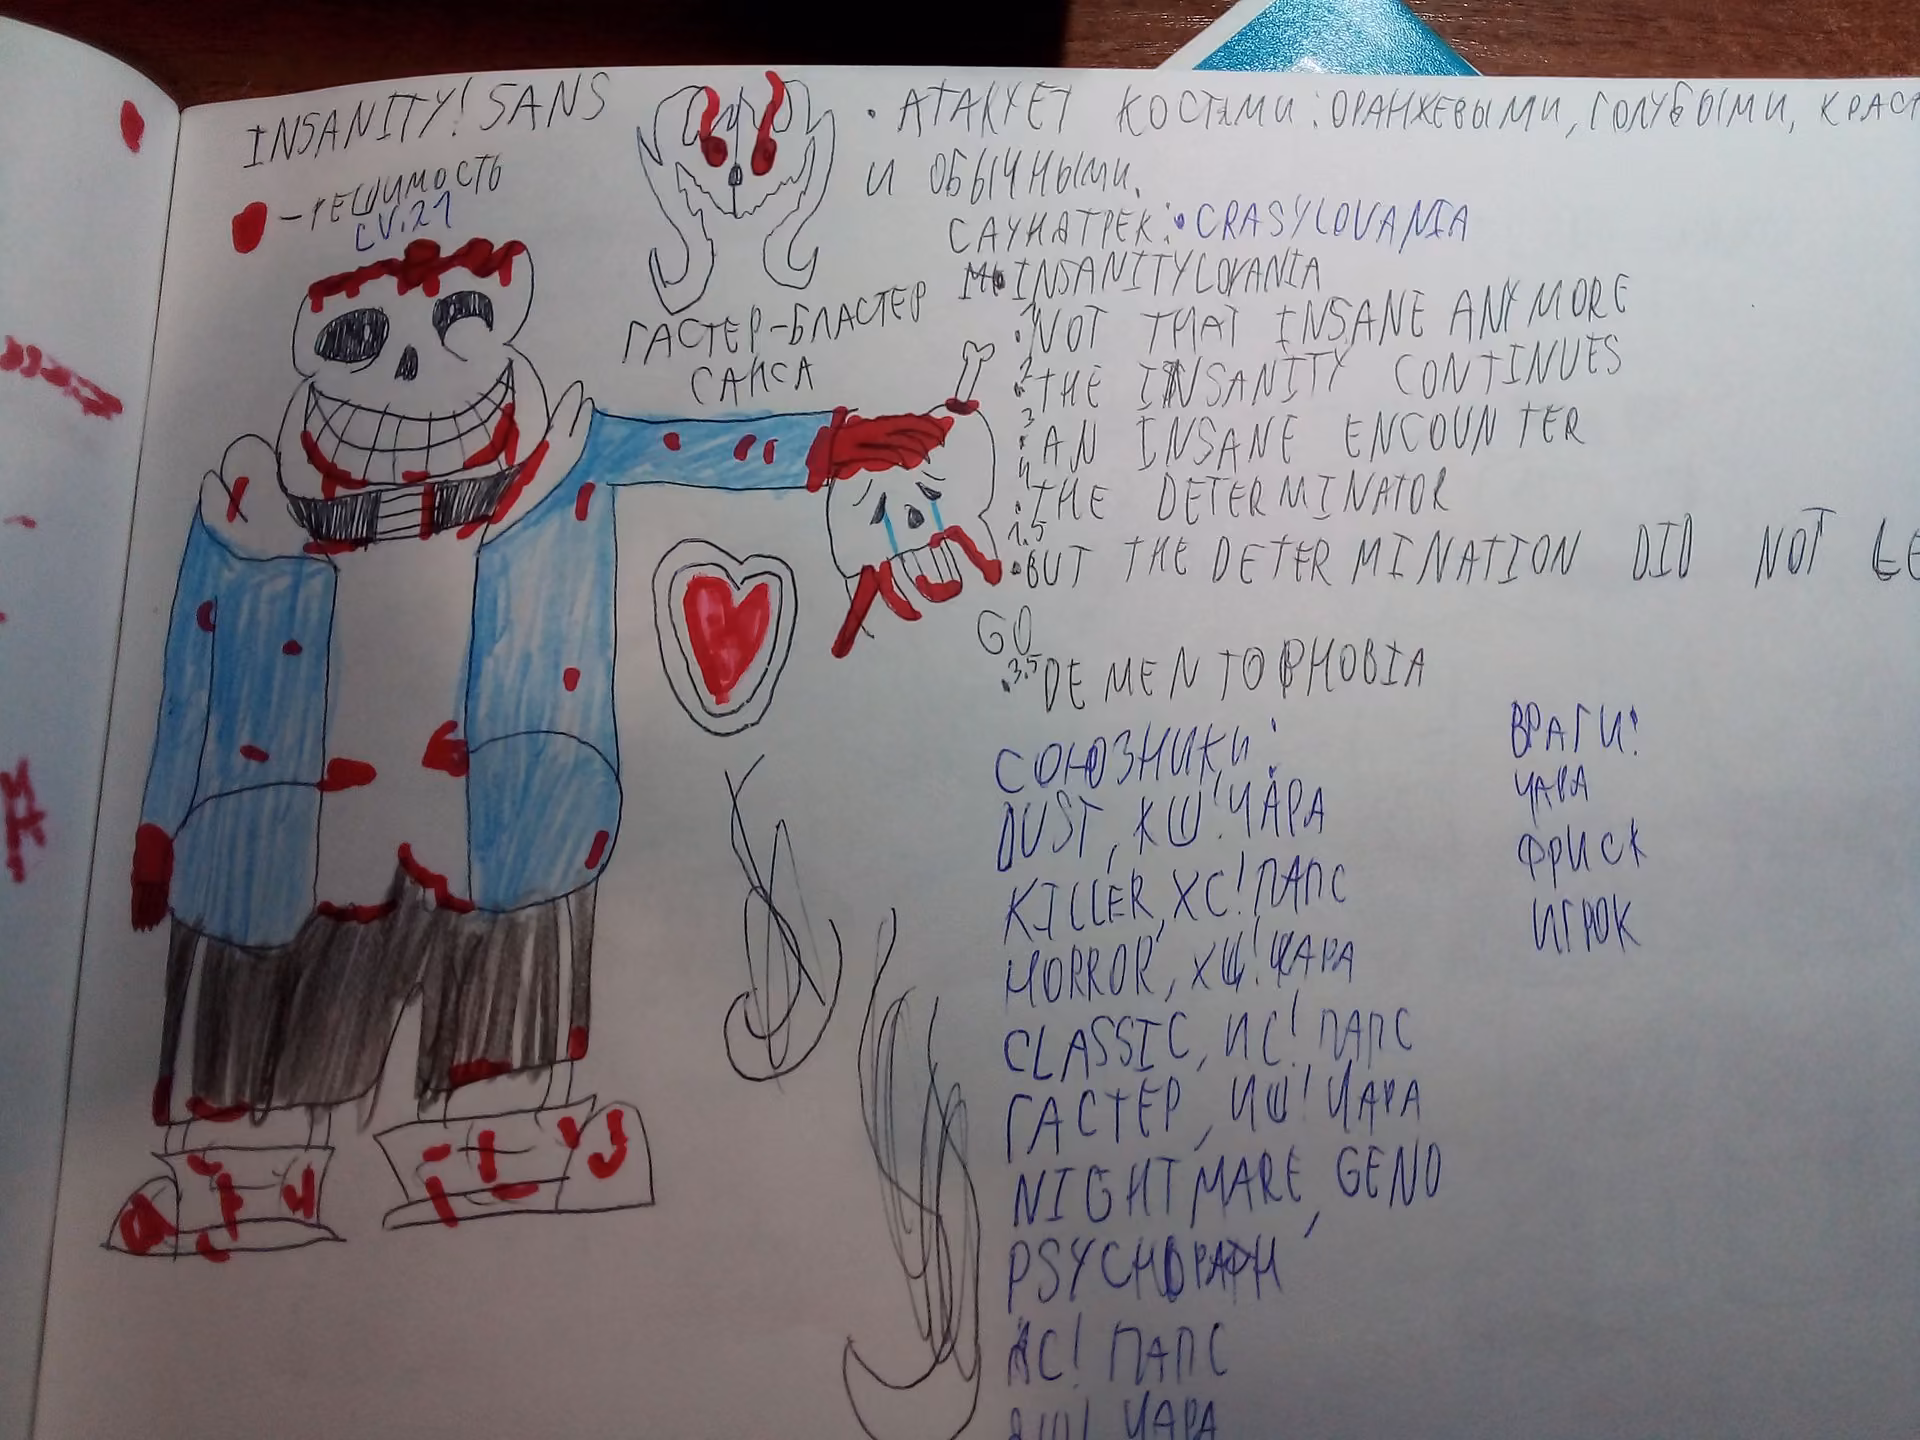 INSANITY! SANS
- РЕШИМОСТЬ
LV.21
ГАСТЕР-БЛАСТЕР
САНСА
• АТАКУЕТ КОСТЯМИ: ОРАНЖЕВЫМИ, ГОЛУБЫМИ, КРАСН
И ОБЫЧНЫМИ.
САУНДТРЕК: • CRASYLOVANIA
INSANITYLOVANIA
1 • NOT THAT INSANE ANYMORE
2 • THE INSANITY CONTINUES
3 • AN INSANE ENCOUNTER
4 • THE DETERMINATOR
1.5 • BUT THE DETERMINATION DID NOT LE
GO
• 3.5 DEMENTOPHOBIA
СОЮЗНИКИ:
DUST, КШ! ЧАРА
KILLER, ХС! ПАПС
HORROR, ХШ! ЧАРА
CLASSIC, ИС! ПАПС
ГАСТЕР, ИШ! ЧАРА
NIGHTMARE, GENO
PSYCHOPATH
ДС! ПАПС
ЧАРА
ВРАГИ:
ЧАРА
ФРИСК
ИГРОК